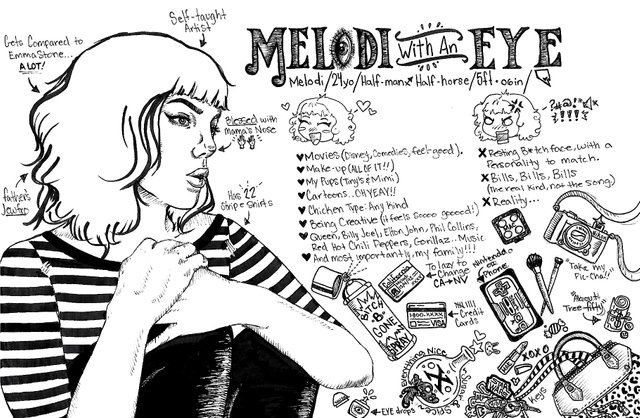 MELODI With An EYE
Melodi/24yo/Half-man Half-horse/5ft.0in/
Self-taught
Artist
Gets Compared to
Emma Stone...
A LOT!
Blessed with
Mama's Nose
Father's
Has "22"
Stripe Shirts
♥ Movies (Disney, Comedies, feel-good).
♥ Make-up (ALL OF IT!!)
♥ My Pups (Tiny & Mimi)
♥ Cartoons...OH YEAH!!
♥ Chicken Type: Any kind
♥ Being Creative (it feels soooo gooood!)
♥ Queen, Billy Joel, Elton John, Phil Collins,
Red Hot Chili Peppers, Gorillaz...Music
♥ And most importantly, my family!!!
X Resting B*tch face, with a
Personality to match.
X Bills, Bills, Bills
(The real kind, not the song)
X Reality...
To lazy to
Change
CA→NV
Nintendo
or
Phone
"Take my
Pic-Cha!!"
B*TCH
-B-
GONE
SPRAY
1-800-XXXX
VISA
Credit
Cards
Tree-fifty
Smelling Nice
XOXO
Keys
EYE drops